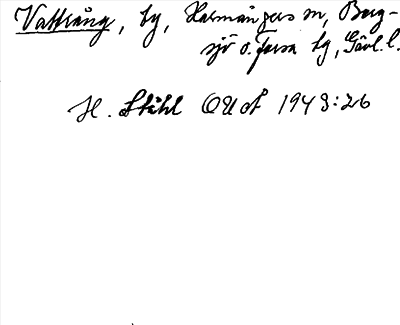 Vattrång, by, Harmångers sn, Berg-
sjö o. Forsa tg, Gävl. l.
H. Ståhl OUoÅ 1943:26